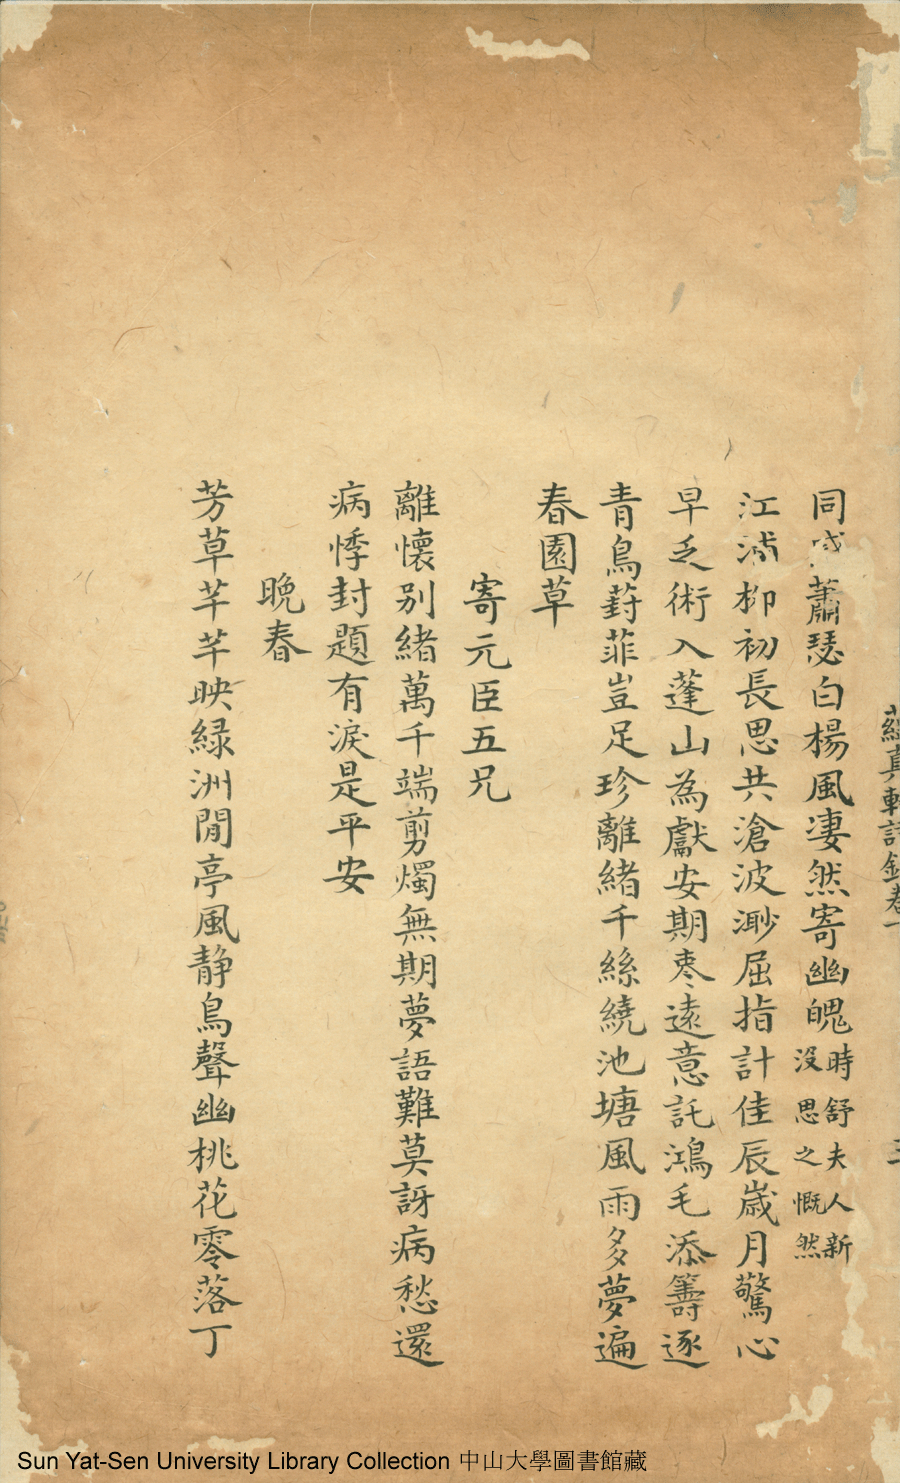 真軒詩鈔卷一
三
同感蕭瑟白楊風淒然寄幽魄
時舒夫人新
沒思之慨然
江浦柳初長思共滄波渺屈指計佳辰歲月驚心
早乏術入蓬山為獻安期棗遠意託鴻毛添籌逐
青鳥葑菲豈足珍離緒千絲繞池塘風雨多夢遍
春園草
寄元臣五兄
離懷別緒萬千端剪燭無期夢語難莫訝病愁還
病悸封題有淚是平安
晚春
芳草芊芊映緑洲閒亭風静鳥聲幽桃花零落丁
Sun Yat-Sen University Library Collection 中山大學圖書館藏